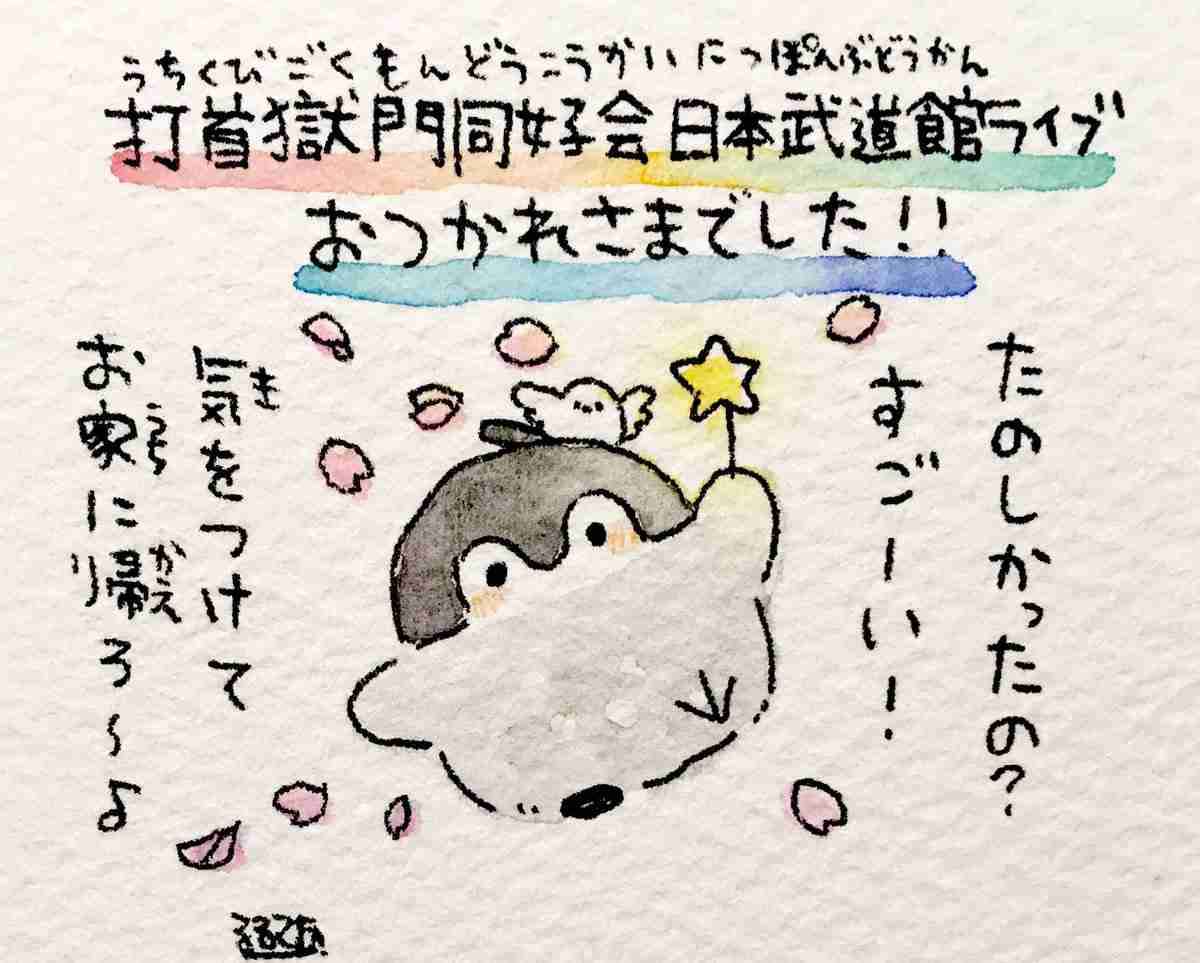 うちくびごくもんどうこうかいにっぽんぶどうかん
打首獄門同好会日本武道館ライブ
おつかれさまでした!!
たのしかったの?
すごーい!
き
気をつけて
うち かえ
お家に帰ろ〜よ
るるてあ